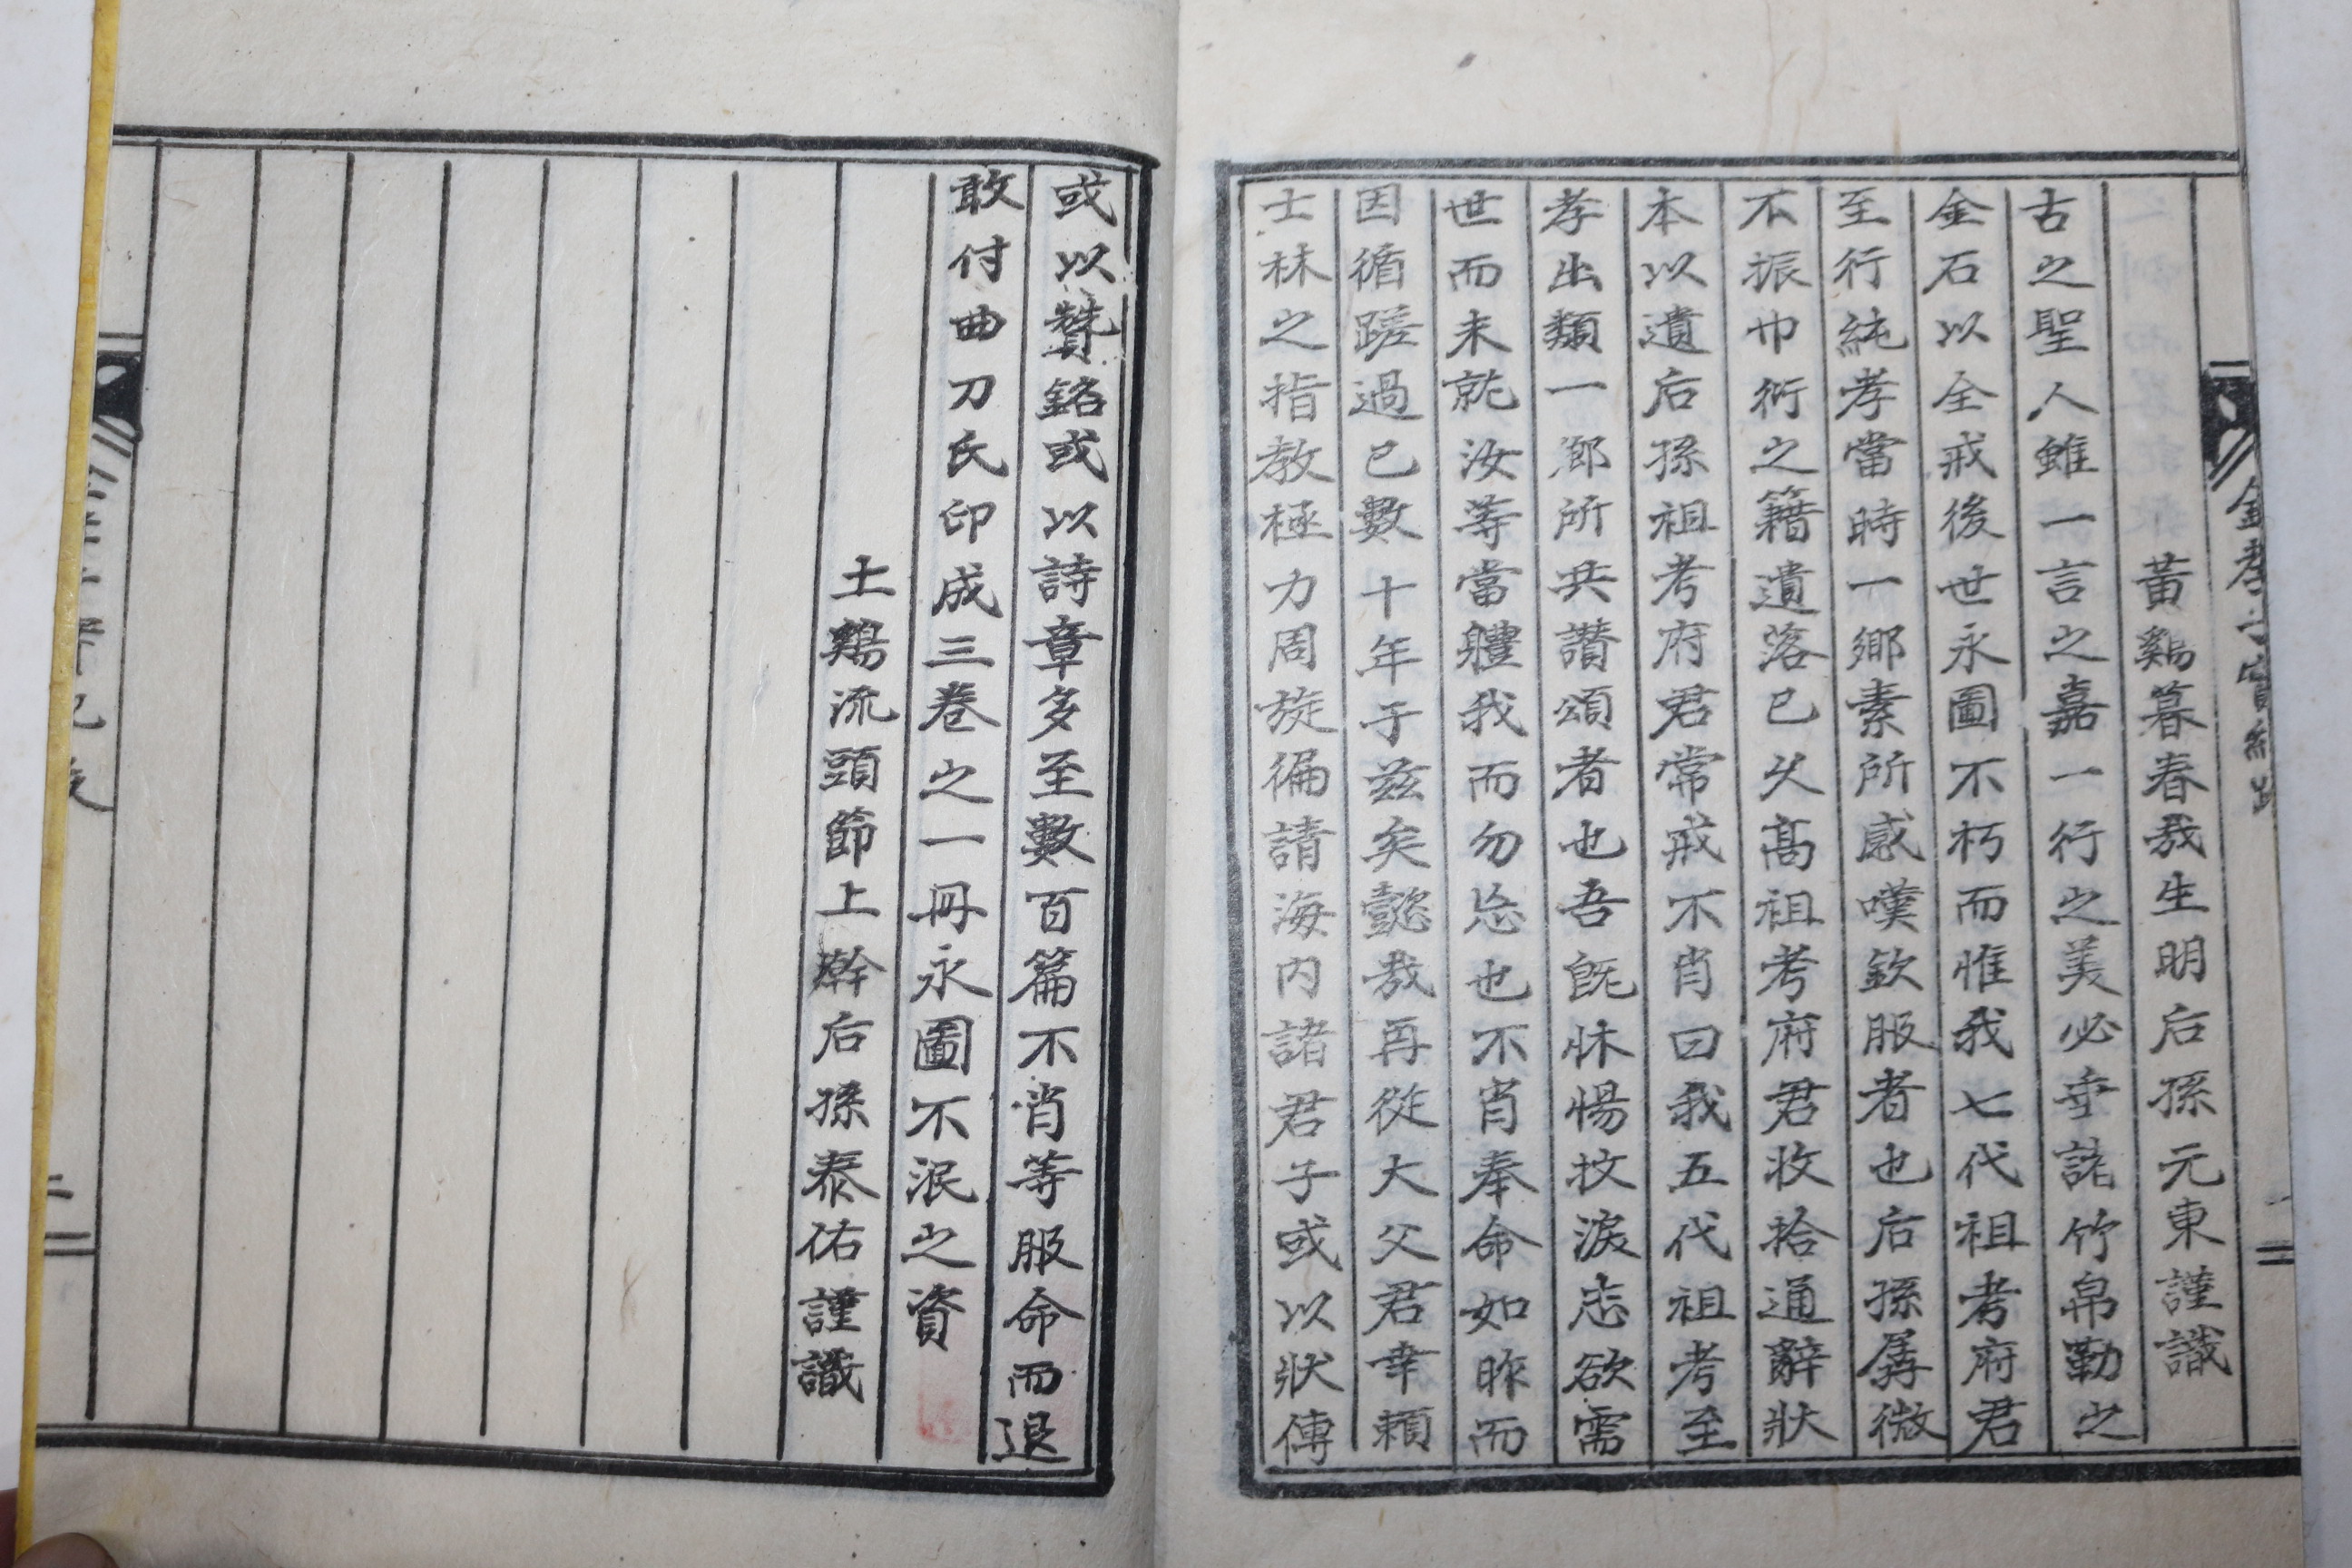 黃鷄暮春哉生明后孫元東謹識
古之聖人雖一言之嘉一行之美必垂諸竹帛勒之
金石以全戒後世永圖不朽而惟我七代祖考府君
至行純孝當時一鄉素所感嘆欽服者也后孫孱微
不振巾衍之籍遺落已久高祖考府君收拾通辭狀
本以遺后孫祖考府君常戒不肖曰我五代祖考至
孝出類一鄉所共讚頌者也吾旣怵惕抆淚志欲需
世而未就汝等當軆我而勿忘也不肖奉命如昨而
因循蹉過已數十年于玆矣懿哉再從大父君幸賴
士林之指教極力周旋徧請海內諸君子或以狀傳
或以贊銘或以詩章多至數百篇不肖等服命而退
敢付曲刀氏印成三卷之一冊永圖不泯之資
土鷄流頭節上澣后孫泰佑謹識